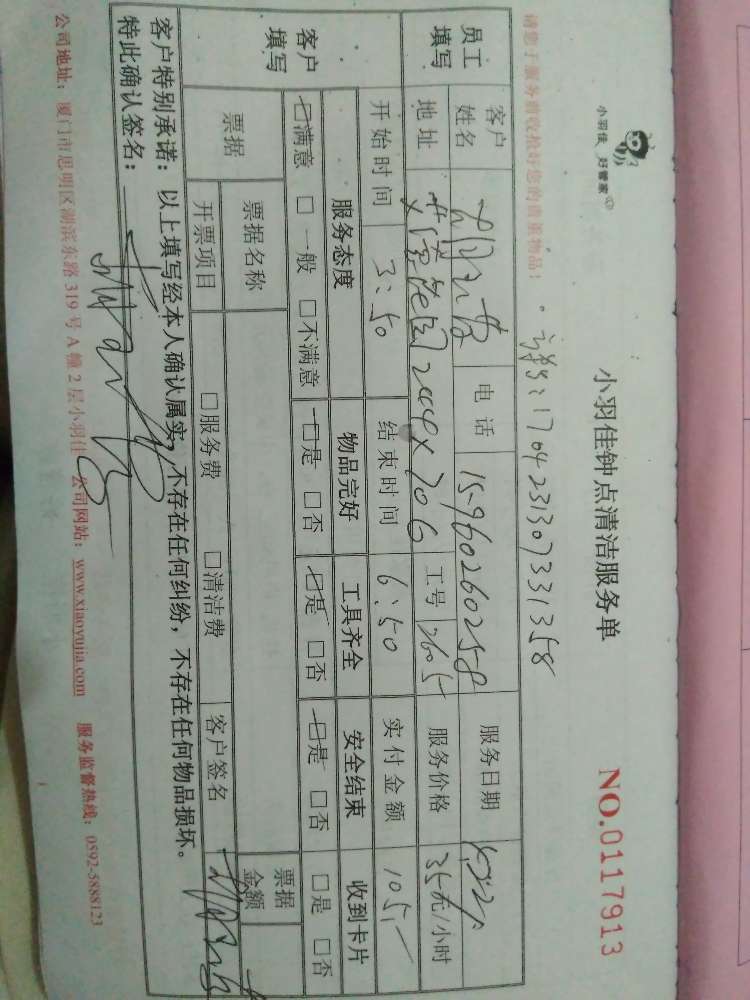 小羽佳 好管家
小羽佳钟点清洁服务单
NO.0117913
请您于服务前收捡好您的贵重物品!
1704231307331358
员工填写 客户姓名 电话 15960260258 服务日期
地址 2004×706 工号 2605 服务价格 35元/小时
客户填写 开始时间 3:50 结束时间 6:50 实付金额 105.-
服务态度 物品完好 工具齐全 安全结束 收到卡片
☑满意 □一般 □不满意 ☑是 □否 ☑是 □否 ☑是 □否 □是 □否
票据 票据名称 票据金额
开票项目 □服务费 □清洁费 客户签名
客户特别承诺：以上填写经本人确认属实，不存在任何纠纷，不存在任何物品损坏。
特此确认签名：
公司地址：厦门市思明区湖滨东路319号A幢2层小羽佳 公司网站：www.xiaoyujia.com 服务监督热线：0592-5888123